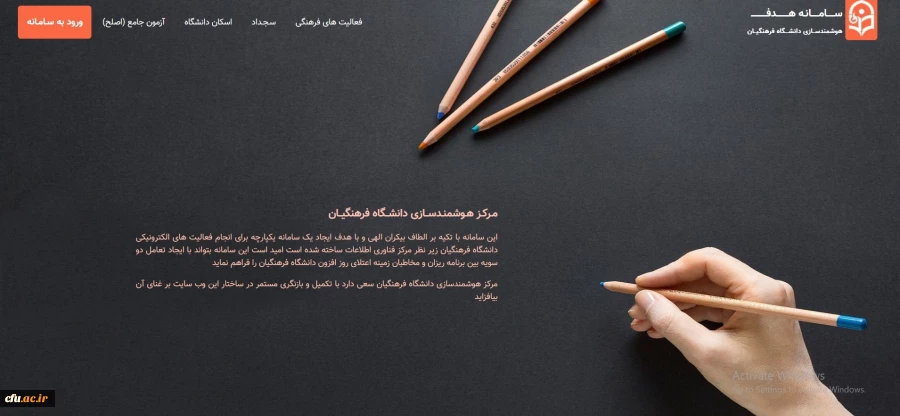 سـامـانه هـدفـــ
هوشمندسـازی دانشـگاه فرهنگیـان
فعالیت های فرهنگی
سجداد
اسکان دانشگاه
آزمون جامع (اصلح)
ورود به سامانه
مرکـز هـوشمنـدسـازی دانشـگاه فرهنگیـان
این سامانه با تکیه بر الطاف بیکران الهی و با هدف ایجاد یک سامانه یکپارچه برای انجام فعالیت های الکترونیکی
دانشگاه فرهنگیان زیر نظر مرکز فناوری اطلاعات ساخته شده است امید است این سامانه بتواند با ایجاد تعامل دو
سویه بین برنامه ریزان و مخاطبان زمینه اعتلای روز افزون دانشگاه فرهنگیان را فراهم نماید
مرکز هوشمندسازی دانشگاه فرهنگیان سعی دارد با تکمیل و بازنگری مستمر در ساختار این وب سایت بر غنای آن
بیافزاید
Activate Windows
to Settings Windows.
cfu.ac.ir